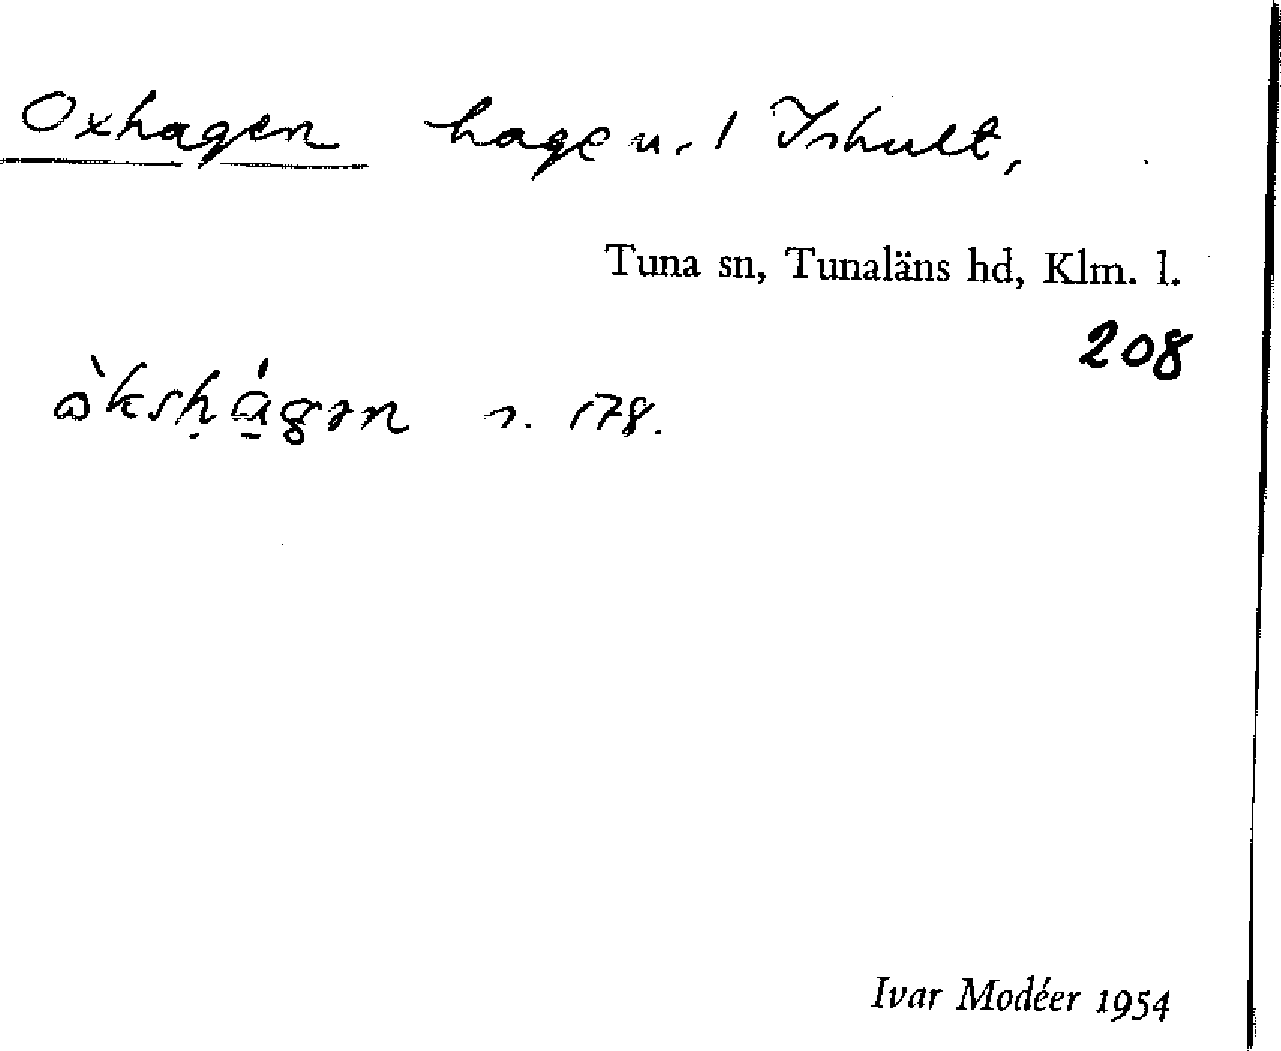 Oxhagen hage u. / Ishult,
Tuna sn, Tunaläns hd, Klm. l.
208
s. 178.
Ivar Modéer 1954